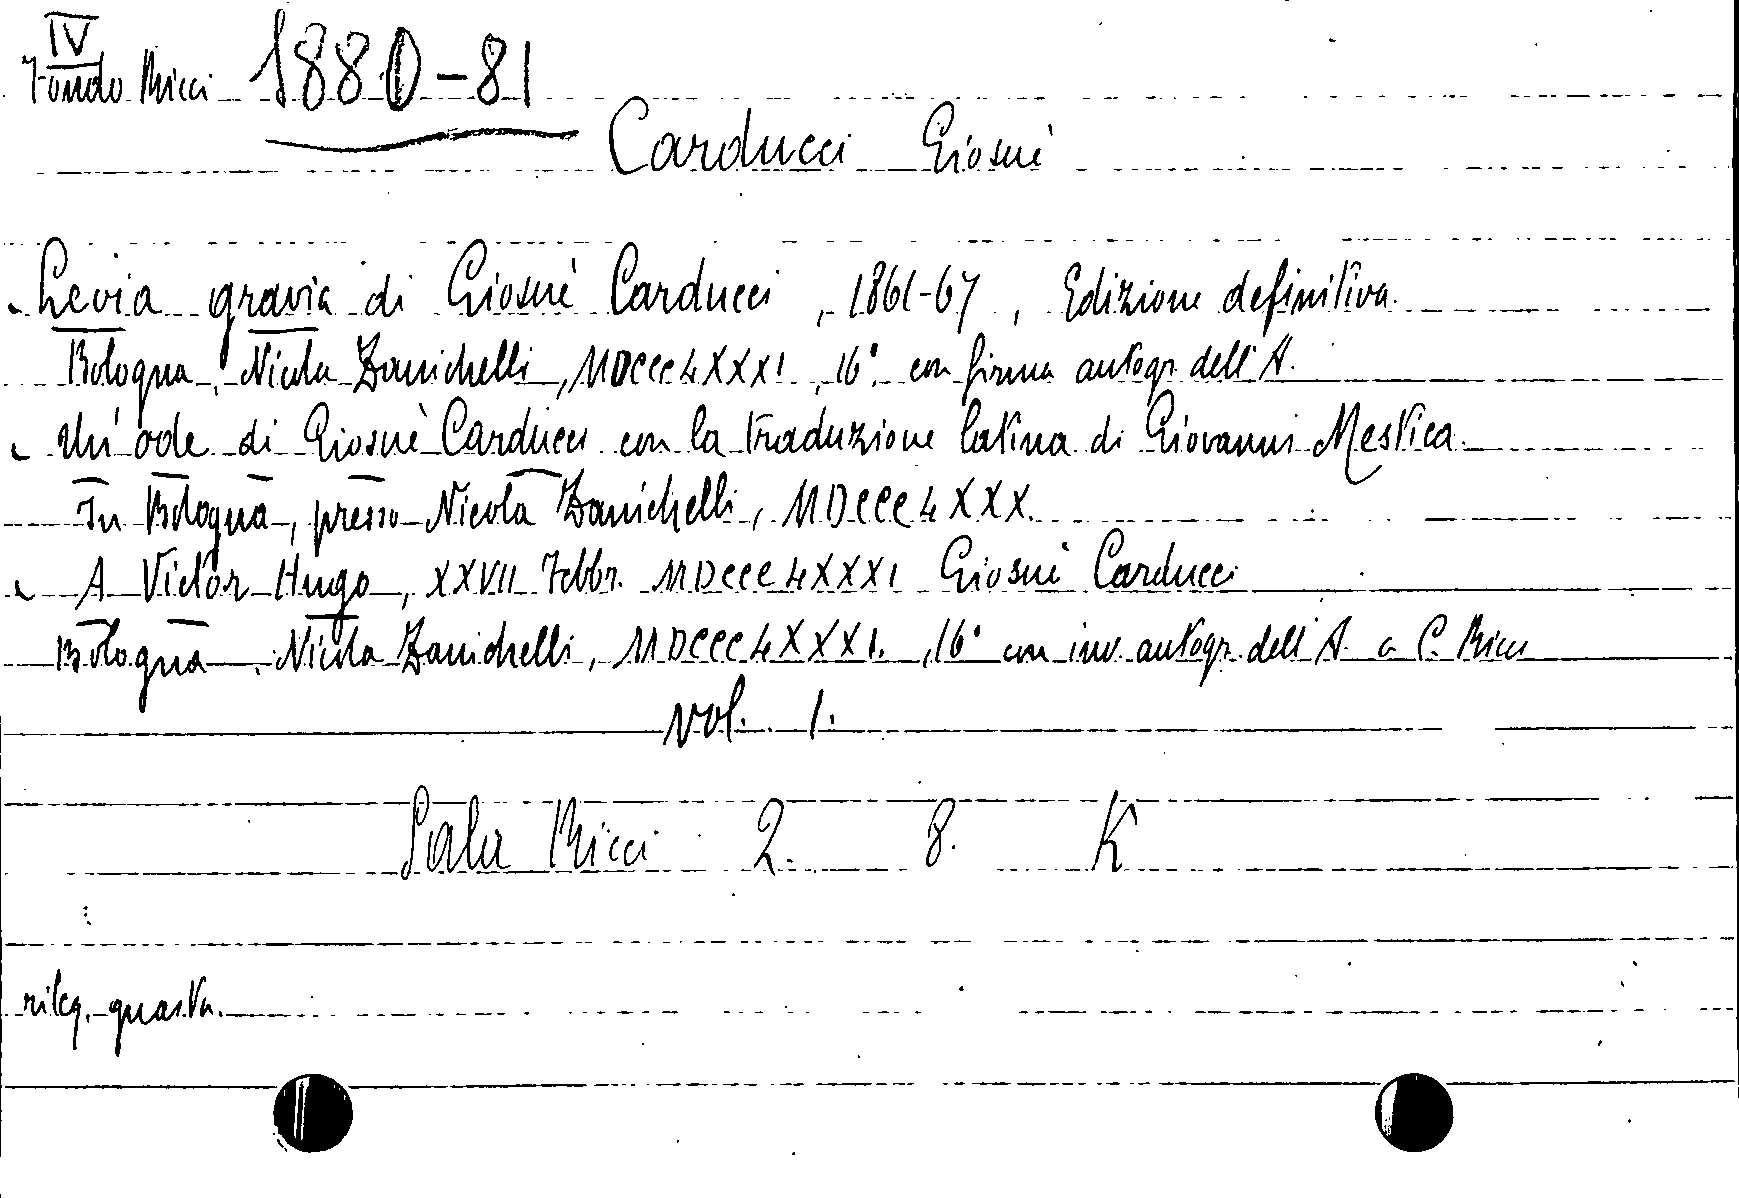 IV
Fondo Ricci 1880-81
Carducci Giosuè
Levia gravia di Giosuè Carducci, 1861-67, Edizione definitiva.
Bologna, Nicola Zanichelli, MDCCCLXXXI, 16°. con firma autogr. dell'A.
Un'ode di Giosuè Carducci con la traduzione latina di Giovanni Mestica.
In Bologna, presso Nicola Zanichelli, MDCCCLXXX.
A Victor Hugo, XXVII Febbr. MDCCCLXXXI Giosuè Carducci
Bologna, Nicola Zanichelli, MDCCCLXXXI., 16° con inv. autogr. dell'A. a C. Ricci
Vol. 1.
Sala Ricci 2. 8. K
rileg. guasta.